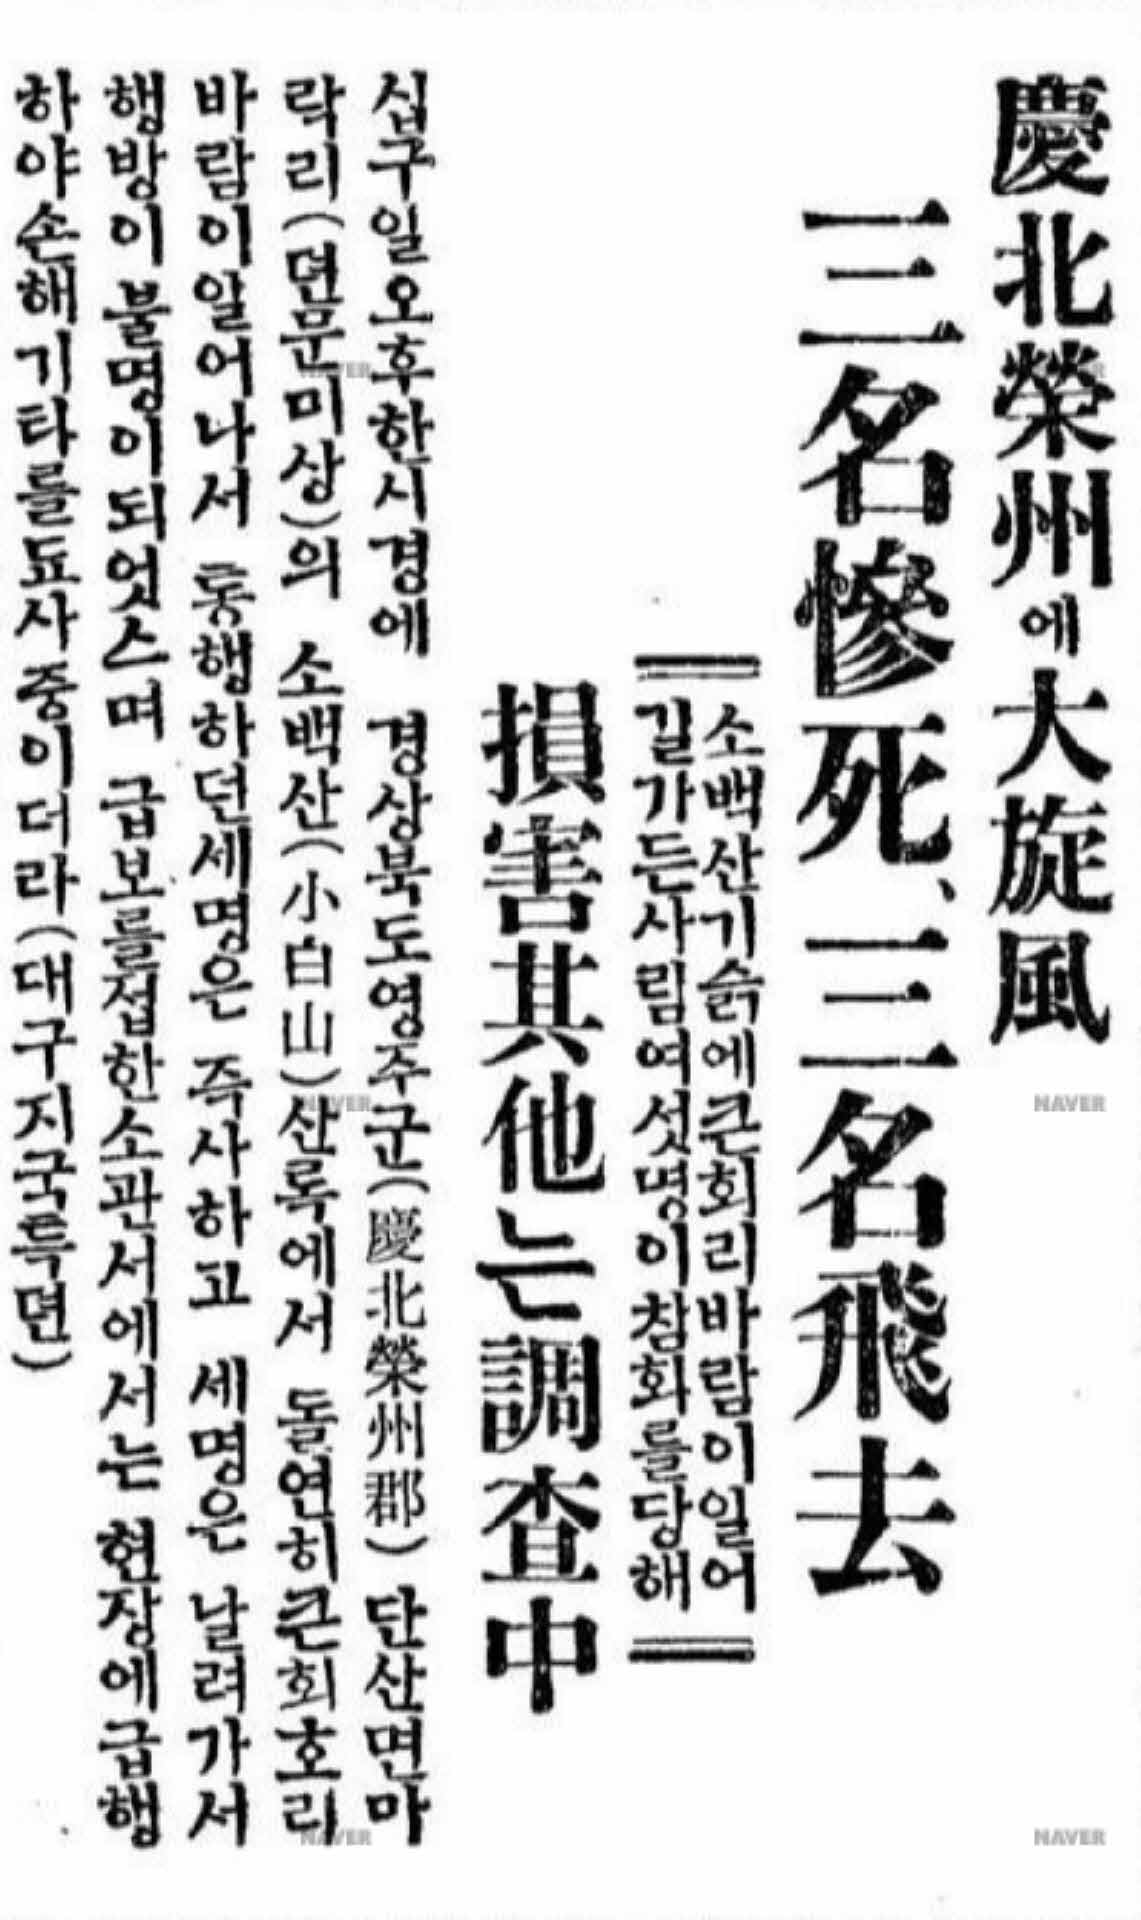 慶北榮州에大旋風
三名慘死、三名飛去
소백산기슭에큰회리바람이일어
길가든사림여섯명이참화를당해
損害其他는調査中
십구일오후한시경에 경상북도영주군(慶北榮州郡) 단산면마
락리(뎐문미상)의 소백산(小白山)산록에서 돌연히큰회호리
바람이일어나서 통행하던세명은 즉사하고 세명은 날려가서
행방이불명이되엇스며 급보를접한소관서에서는 현장에급행
하야손해기타를됴사중이더라(대구지국특뎐)
NAVER
NAVER
NAVER
NAVER
NAVER
NAVER